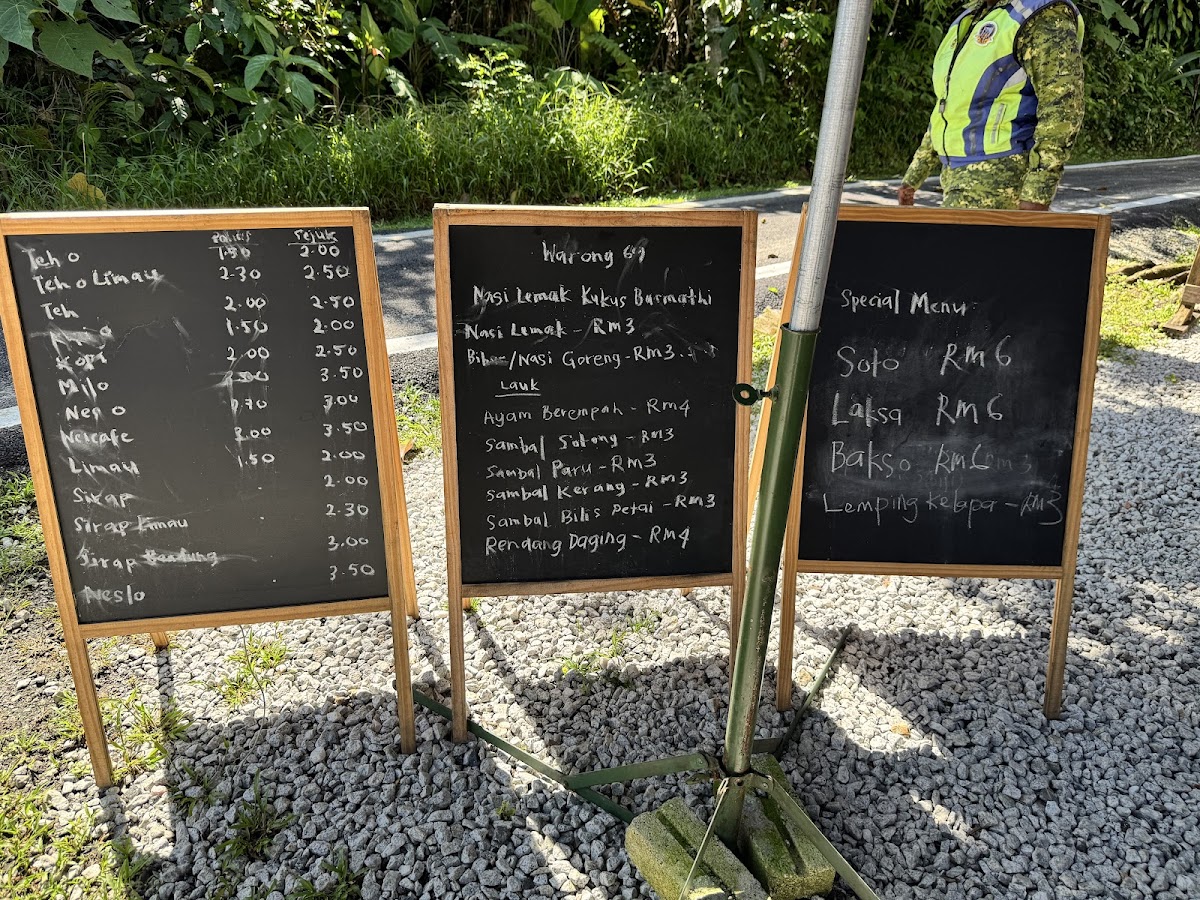 Sejuk
Teh O 1.50 2.00
Teh O Limau 2.30 2.50
Teh 2.00 2.50
1.50 2.00
Kopi 2.00 2.50
Milo 3.50
Nes O 3.00
Nescafe 3.00 3.50
Limau 1.50 2.00
Sirap 2.00
Sirap Limau 2.30
Sirap Bandung 3.00
Neslo 3.50
Warong 69
Nasi Lemak Kukus Basmathi
Nasi Lemak - RM3
Bihun/Nasi Goreng - RM3
Lauk
Ayam Berempah - RM4
Sambal Sotong - RM3
Sambal Paru - RM3
Sambal Kerang - RM3
Sambal Bilis Petai - RM3
Rendang Daging - RM4
Special Menu
Soto RM6
Laksa RM6
Bakso RM6
Lemping Kelapa - RM3